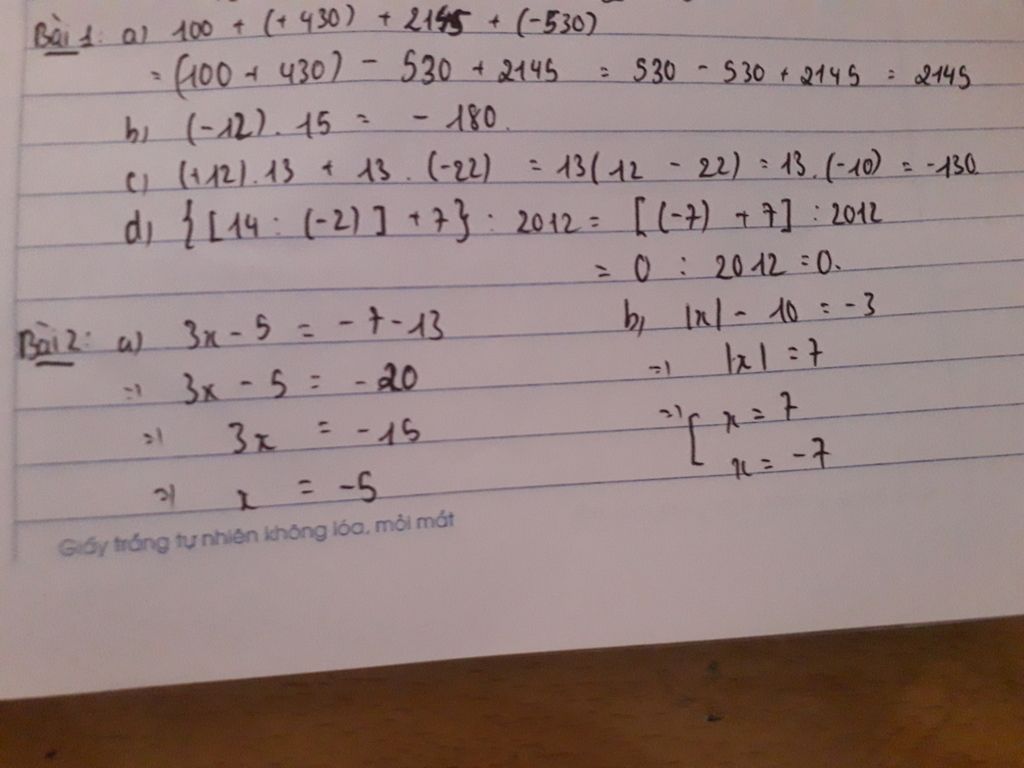 Bài 1: a) 100 + (+430) + 2145 + (-530)
= (100 + 430) - 530 + 2145 = 530 - 530 + 2145 = 2145
b, (-12) . 15 = - 180.
c, (+12).13 + 13 . (-22) = 13(12 - 22) = 13.(-10) = -130
d, {[14 : (-2)] + 7} : 2012 = [(-7) + 7] : 2012
= 0 : 2012 = 0.
Bài 2: a) 3x - 5 = -7 - 13
=> 3x - 5 = -20
=> 3x = -15
=> x = -5
b, |x| - 10 = -3
=> |x| = 7
=> [ x = 7
x = -7
Giấy trắng tự nhiên không lóa, mỏi mắt